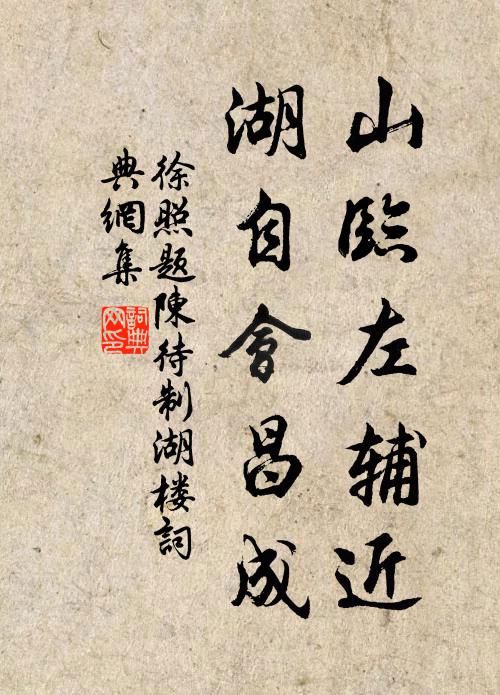 山臨左辅近
湖自會昌成
徐照题陳待制湖楼詞
典網集
詞典
网印